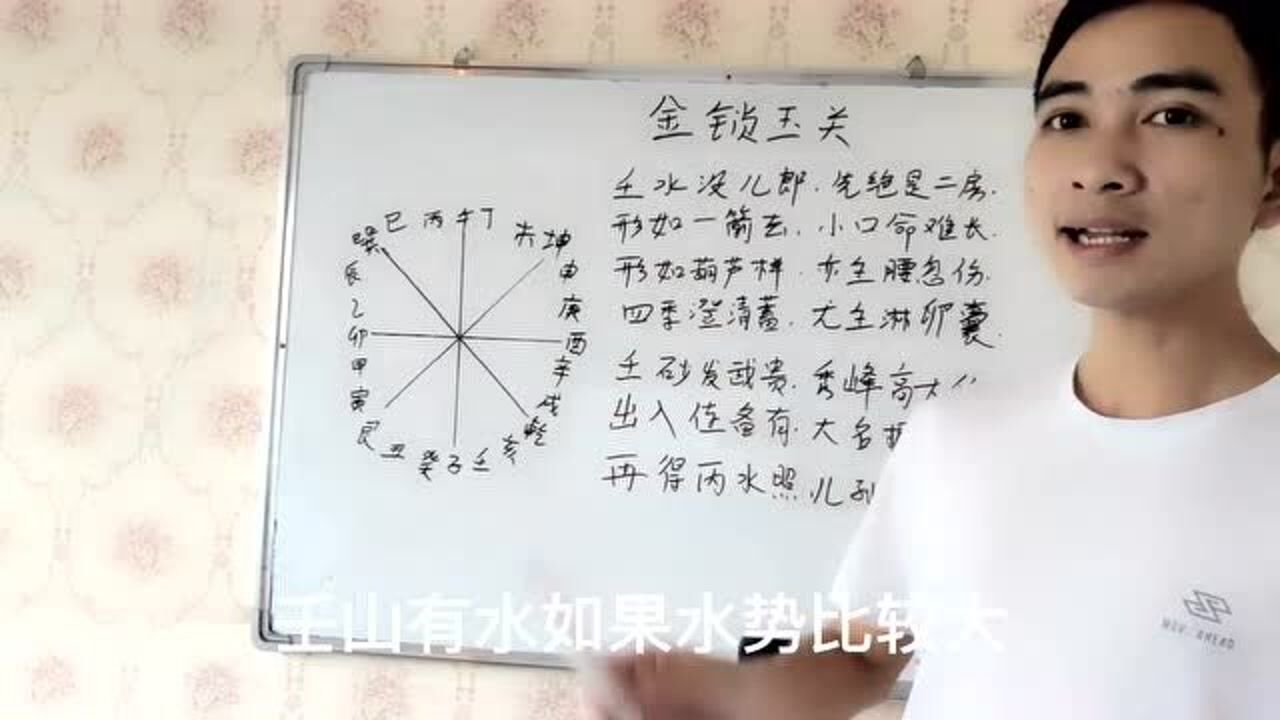 金锁玉关
壬水没儿郎.先绝是二房.
形如一箭去.小口命难长.
形如葫芦样.亦主腰忽伤.
四季澄清蓄.尤主淋卵囊.
壬砂发武贵.秀峰高大
出入佐备有.大名
再得丙水照.儿孙
巽 巳 丙 午 丁 未 坤
辰 申
乙 庚
卯 酉
甲 辛
寅 戌
艮 丑 癸 子 壬 亥 乾
壬山有水如果水势比较大